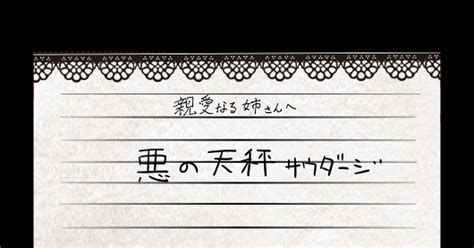 親愛なる姉さんへ
悪の天秤 サウダージ